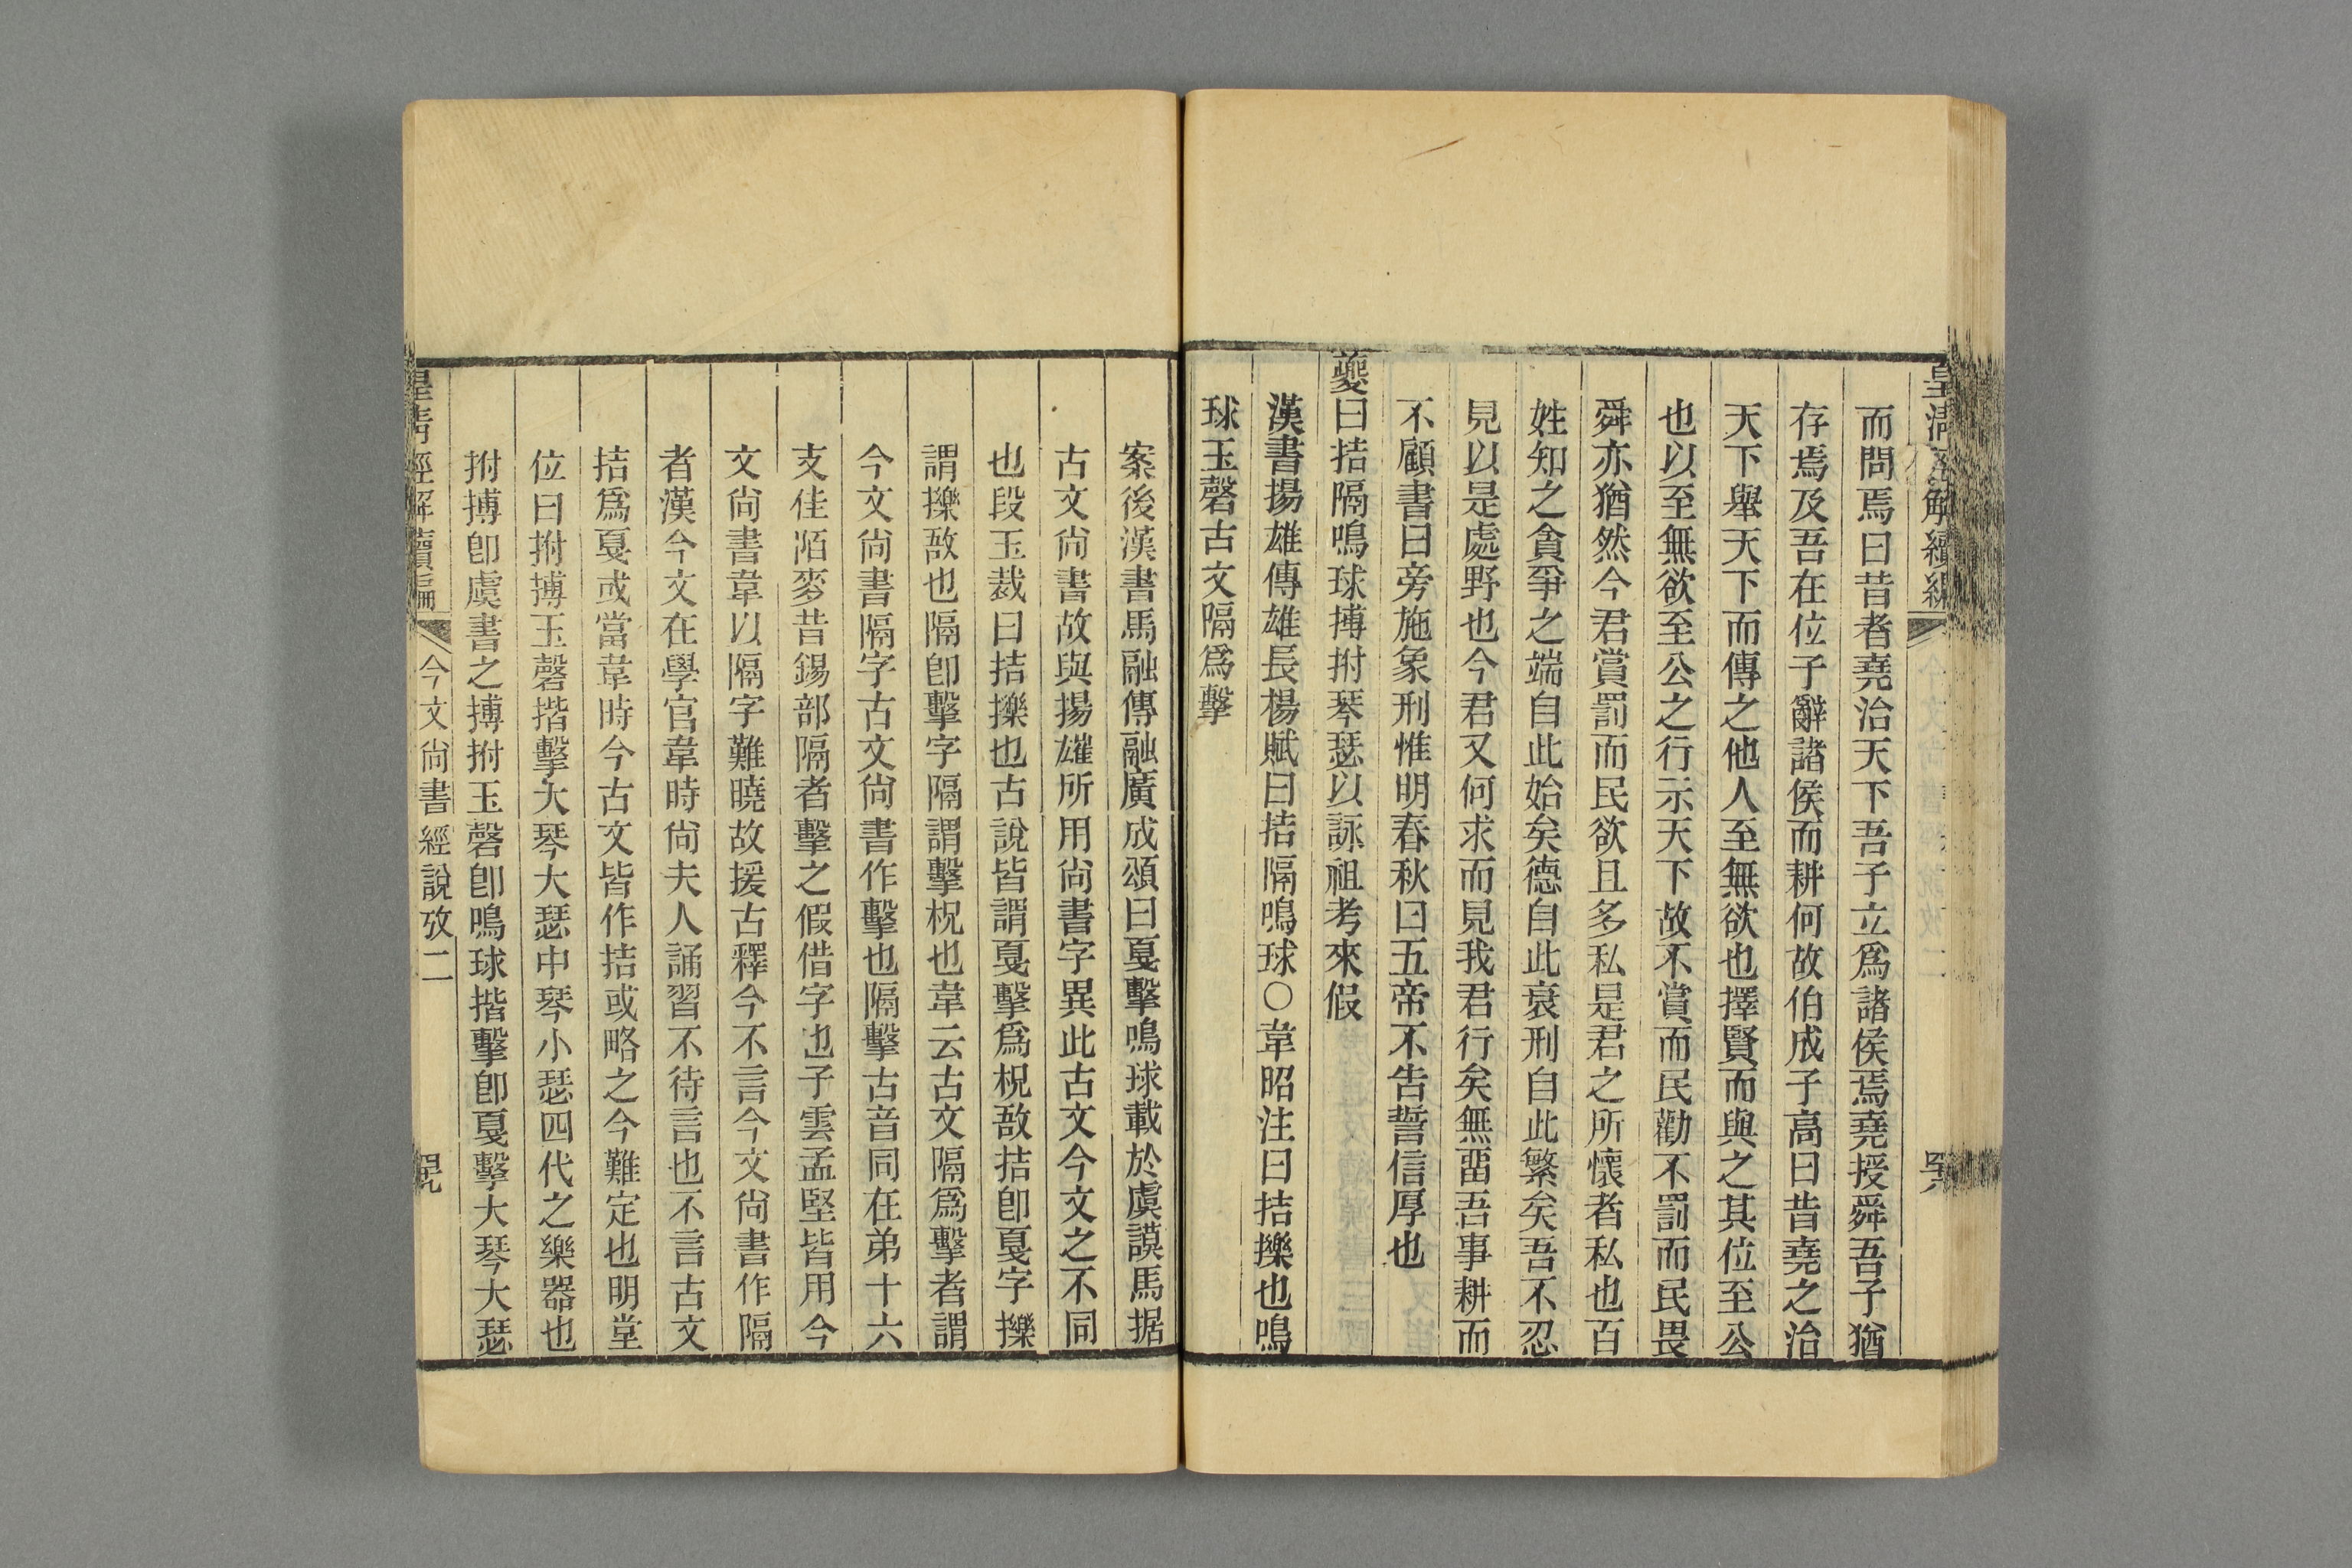 皇清經解續編
而問焉曰昔者堯治天下吾子立爲諸侯焉堯授舜吾子猶
存焉及吾在位子辭諸侯而耕何故伯成子高曰昔堯之治
天下舉天下而傳之他人至無欲也擇賢而與之其位至公
也以至無欲至公之行示天下故不賞而民勸不罰而民畏
舜亦猶然今君賞罰而民欲且多私是君之所懷者私也百
姓知之貪爭之端自此始矣德自此衰刑自此繁矣吾不忍
見以是處野也今君又何求而見我君行矣無畱吾事耕而
不顧書曰旁施象刑惟明春秋曰五帝不告誓信厚也
夔曰拮隔鳴球搏拊琴瑟以詠祖考來假
漢書揚雄傳雄長楊賦曰拮隔鳴球○韋昭注曰拮擽也鳴
球玉磬古文隔爲擊
案後漢書馬融傳融廣成頌曰戛擊鳴球載於虞謨馬据
古文尙書故與揚雄所用尙書字異此古文今文之不同
也段玉裁曰拮擽也古說皆謂戛擊爲柷敔拮卽戛字擽
謂擽敔也隔卽擊字隔謂擊柷也韋云古文隔爲擊者謂
今文尙書隔字古文尙書作擊也隔擊古音同在弟十六
支佳陌麥昔錫部隔者擊之假借字也子雲孟堅皆用今
文尙書韋以隔字難曉故援古釋今不言今文尙書作隔
者漢今文在學官韋時尙夫人誦習不待言也不言古文
拮爲戛或當韋時今古文皆作拮或略之今難定也明堂
位曰拊搏玉磬揩擊大琴大瑟中琴小瑟四代之樂器也
拊搏卽虞書之搏拊玉磬卽鳴球揩擊卽戛擊大琴大瑟
皇清經解續編 今文尙書經說攷二